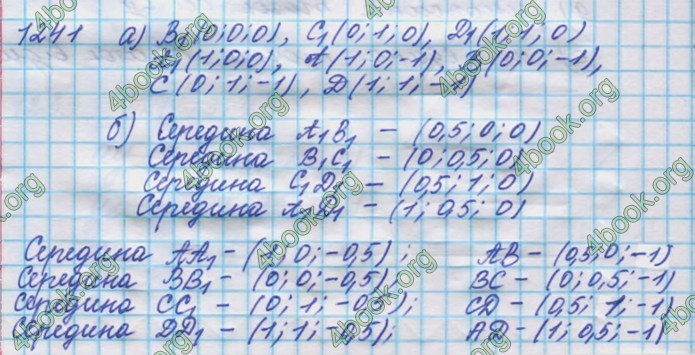 1241 а) B₁(0;0;0), C₁(0;1;0), D₁(1;1;0)
A₁(1;0;0), A(1;0;-1), B(0;0;-1),
C(0;1;-1), D(1;1;-1)
б) Середина A₁B₁ – (0,5;0;0)
Середина B₁C₁ – (0;0,5;0)
Середина C₁D₁ – (0,5;1;0)
Середина A₁D₁ – (1;0,5;0)
Середина AA₁ – (1;0;-0,5); AB – (0,5;0;-1)
Середина BB₁ – (0;0;-0,5); BC – (0;0,5;-1)
Середина CC₁ – (0;1;-0,5); CD – (0,5;1;-1)
Середина DD₁ – (1;1;-0,5); AD – (1;0,5;-1)
4book.org